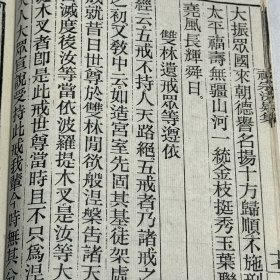 禪宗決疑集
大振眾國來朝德譽名揚十方歸順不施刑
太平福壽無疆山河一統金枝挺秀玉葉聯
堯風長輝舜日
雙林遺戒眾等遵依
經云五戒不持人天路絕五戒者乃諸戒之
之初又教中云如造宮室先固其基徒架虛
成就昔日世尊於雙林間欲般涅槃告諸大
滅度後汝等當依波羅提木叉是汝等大
木叉者即是此戒世尊當時且不只為涅
人大眾宣說受持此戒我輩今時無其分